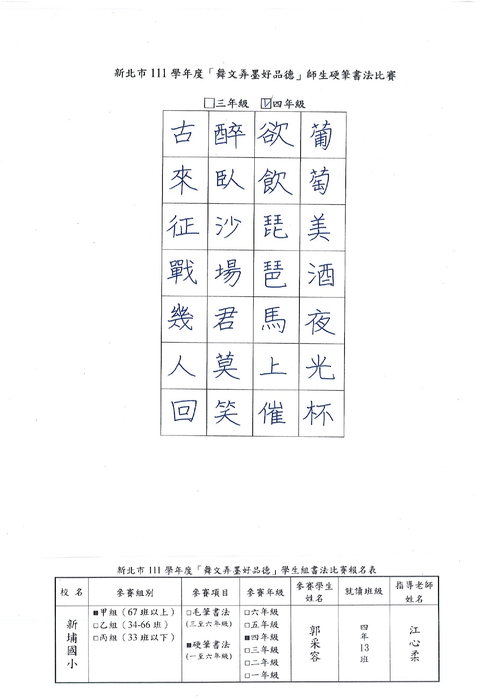 新北市 111 學年度「舞文弄墨好品德」師生硬筆書法比賽
□三年級 ☑四年級
葡萄美酒夜光杯
欲飲琵琶馬上催
醉臥沙場君莫笑
古來征戰幾人回
新北市 111 學年度「舞文弄墨好品德」學生組書法比賽報名表
校 名 參賽組別 參賽項目 參賽年級 參賽學生姓名 就讀班級 指導老師姓名
新埔國小
■甲組（67 班以上）
□乙組（34-66 班）
□丙組（33 班以下）
□毛筆書法
(三至六年級)
■硬筆書法
(一至六年級)
□六年級
□五年級
■四年級
□三年級
□二年級
□一年級
郭采容
四年13班
江心柔